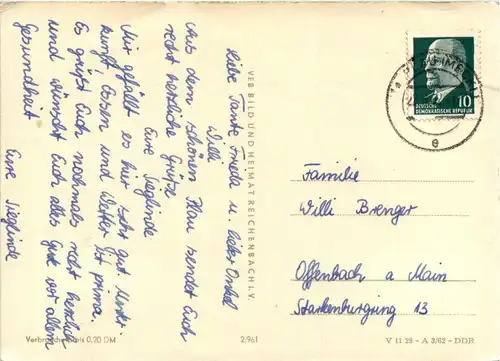 Liebe Tante Frieda u. lieber Onkel
Willi
Aus dem schönen Plau sendet Euch
recht herzliche Grüße
Eure Sieglinde
Mir gefällt es hier sehr gut. Unter-
kunft, Essen und Wetter ist prima.
Es grüßt Euch nochmals recht herzlich
und wünscht Euch alles Gute vor allem
Gesundheit
Eure Sieglinde
VEB BILD UND HEIMAT REICHENBACH I. V.
DEUTSCHE
DEMOKRATISCHE REPUBLIK
10
e
Familie
Willi Brenger
Offenbach a Main
Starkenburgring 13
Verbraucherpreis 0,20 DM
2,961
V 11 28 - A 3/62 - DDR